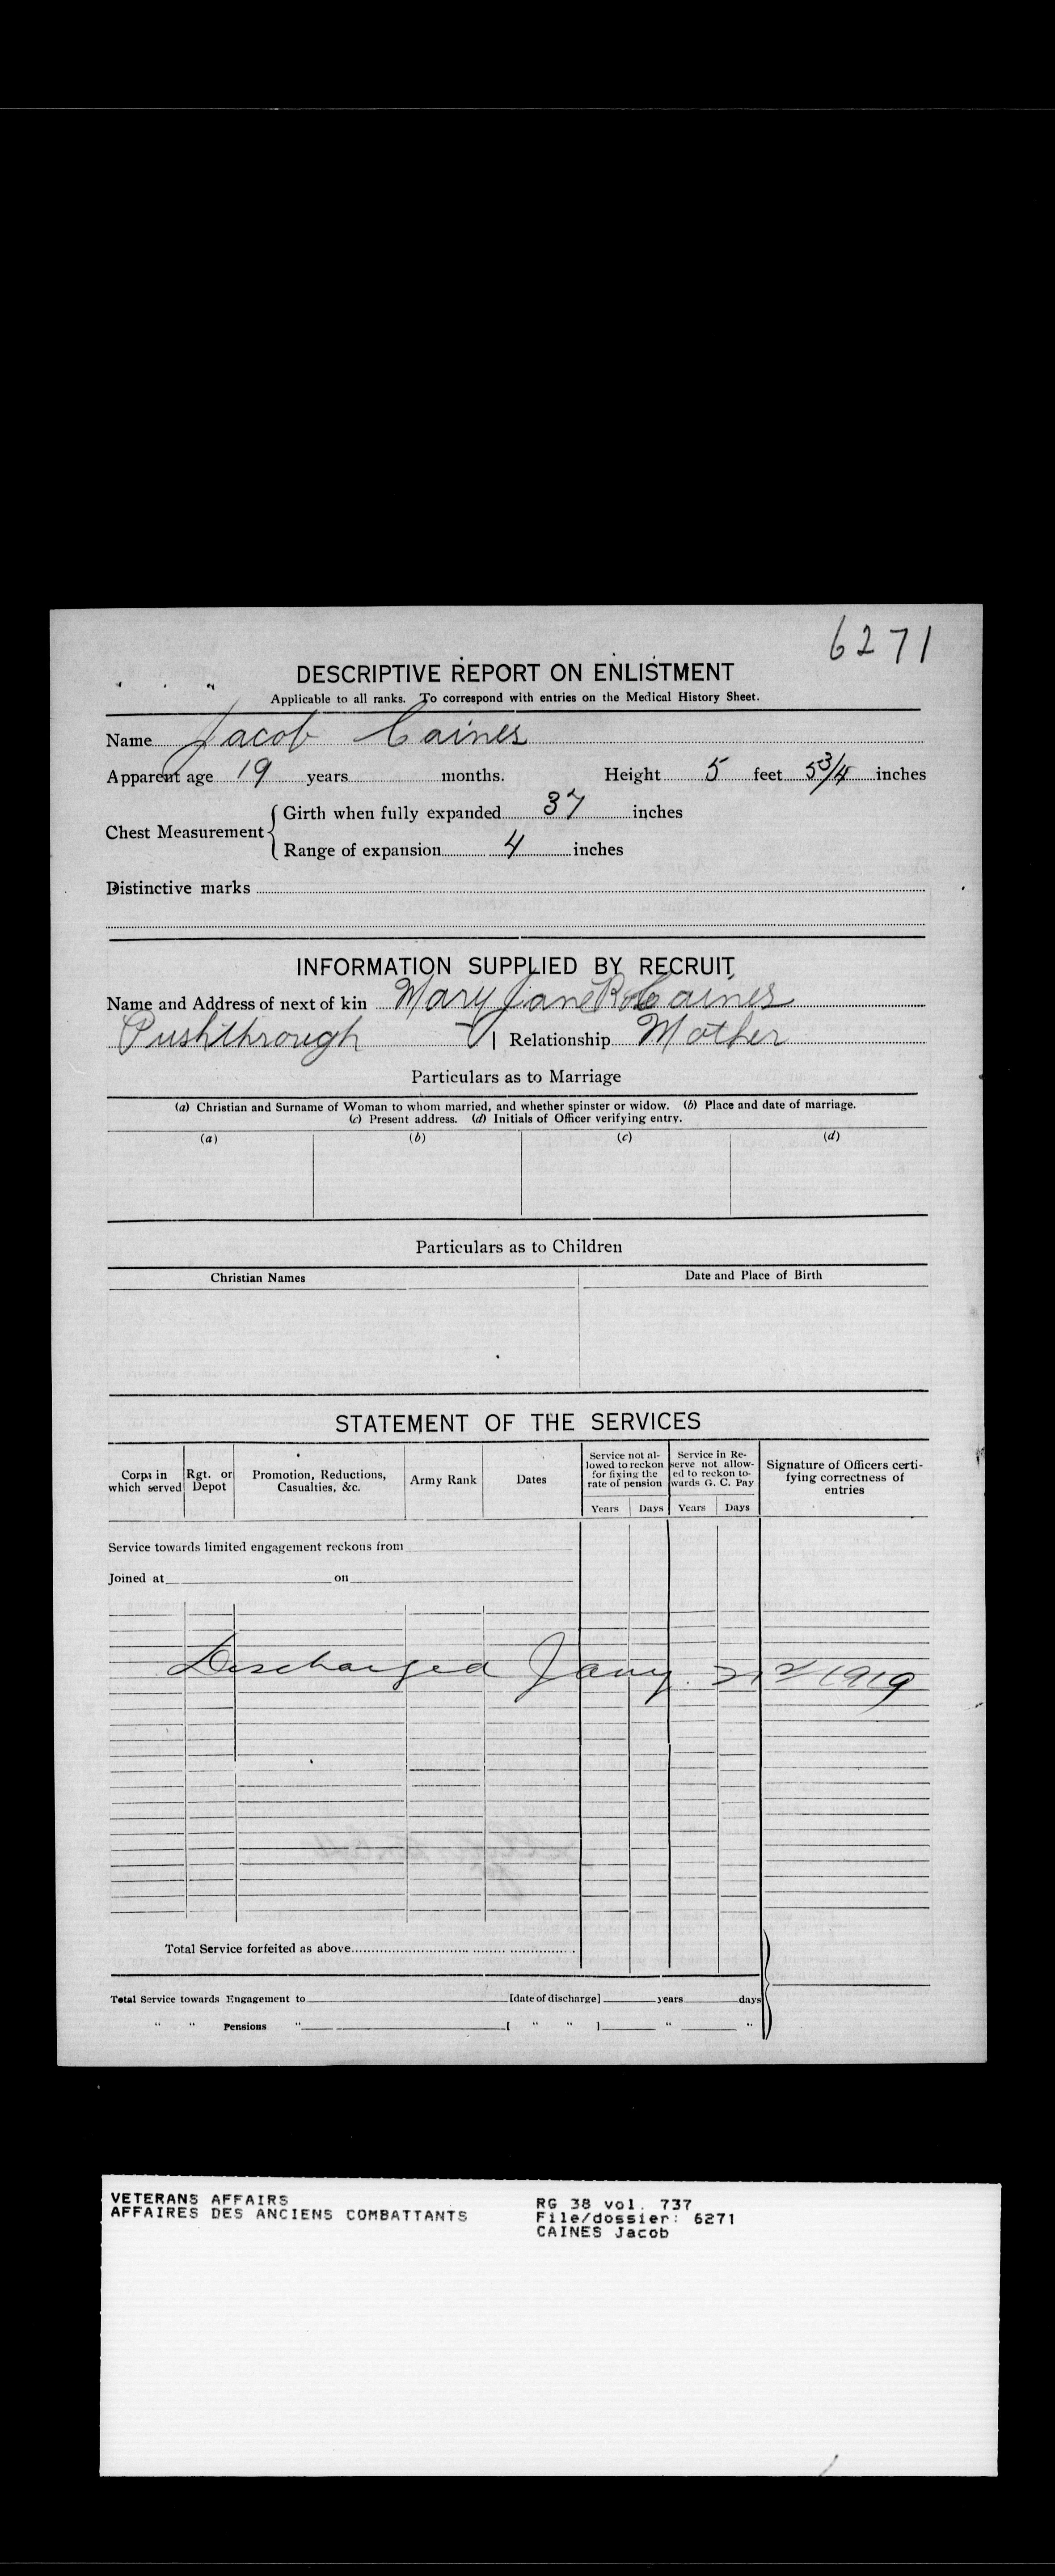 6271
DESCRIPTIVE REPORT ON ENLISTMENT
Applicable to all ranks. To correspond with entries on the Medical History Sheet.
Name Jacob Caines
Apparent age 19 years months. Height 5 feet 5 3/4 inches
Chest Measurement { Girth when fully expanded 37 inches
Range of expansion 4 inches
Distinctive marks
INFORMATION SUPPLIED BY RECRUIT
Name and Address of next of kin Mary Jane Caines
Pushthrough | Relationship Mother
Particulars as to Marriage
(a) Christian and Surname of Woman to whom married, and whether spinster or widow. (b) Place and date of marriage.
(c) Present address. (d) Initials of Officer verifying entry.
(a) (b) (c) (d)
Particulars as to Children
Christian Names Date and Place of Birth
STATEMENT OF THE SERVICES
Corps in which served Rgt. or Depot Promotion, Reductions, Casualties, &c. Army Rank Dates Service not allowed to reckon for fixing the rate of pension Service in Reserve not allowed to reckon towards G. C. Pay Signature of Officers certifying correctness of entries
Years Days Years Days
Service towards limited engagement reckons from
Joined at on
Discharged Jany. 21st 1919
Total Service forfeited as above
Total Service towards Engagement to [date of discharge] years days
" " Pensions " [ " " ] " "
VETERANS AFFAIRS
AFFAIRES DES ANCIENS COMBATTANTS
RG 38 vol. 737
File/dossier: 6271
CAINES Jacob